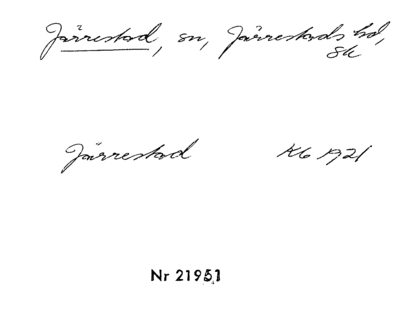 Järrestad, sn, Järrestads hd,
Sk
Järrestad Kb 1921
Nr 21951